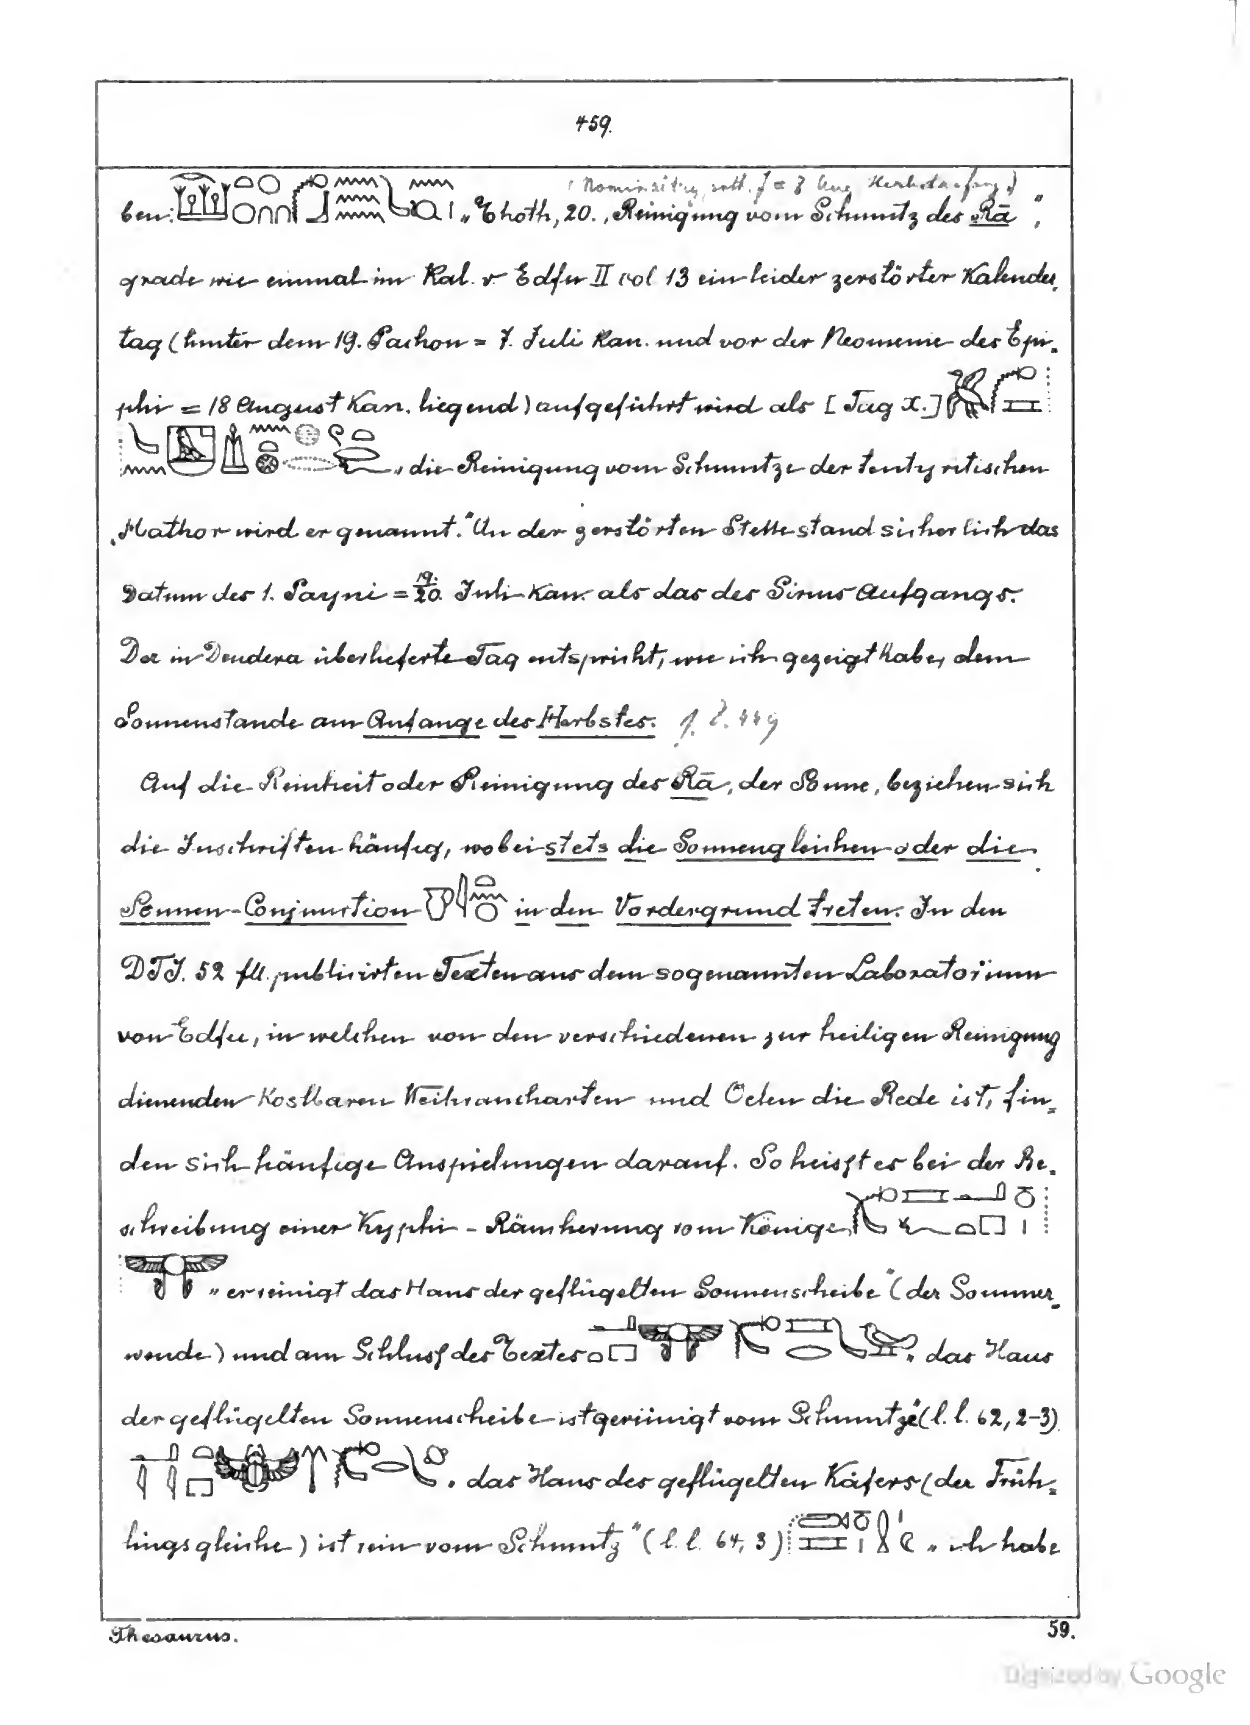 459.
ben: „Thoth, 20. „Reinigung vom Schmutz des Rā“,
grade wie einmal im Kal. v. Edfu II col 13 ein leider zerstörter Kalender-
tag (hinter dem 19. Pachon = 7. Juli Kan. und vor der Neomenie des Epi-
phi = 18 August Kan. liegend) aufgeführt wird als [Tag x.]
„die Reinigung vom Schmutze der tentyritischen
„Hathor wird er genannt.“ An der zerstörten Stelle stand sicherlich das
Datum des 1. Payni = 19./20. Juli Kan. als das des Sirius Aufgangs.
Der in Dendera überlieferte Tag entspricht, wie ich gezeigt habe, dem
Sonnenstande am Anfange des Herbstes. 449
Auf die Reinheit oder Reinigung des Rā, der Sonne, beziehen sich
die Inschriften häufig, wobei stets die Sonnengleichen oder die
Sonnen-Conjunction in den Vordergrund treten. In den
DTI. 52 fll. publicirten Texten aus dem sogenannten Laboratorium
von Edfu, in welchen von den verschiedenen zur heiligen Reinigung
dienenden kostbaren Weihraucharten und Oelen die Rede ist, fin-
den sich häufige Anspielungen darauf. So heisst es bei der Be-
schreibung einer Kyphi-Räucherung vom Könige
„er reinigt das Haus der geflügelten Sonnenscheibe“ (der Sommer-
wende) und am Schluss des Textes „das Haus
der geflügelten Sonnenscheibe ist gereinigt vom Schmutze“ (l. l. 62, 2-3)
„das Haus des geflügelten Käfers (der Früh-
lingsgleiche) ist rein vom Schmutz“ (l. l. 64, 3) „ich habe
Thesaurus. 59.
Digitized by Google